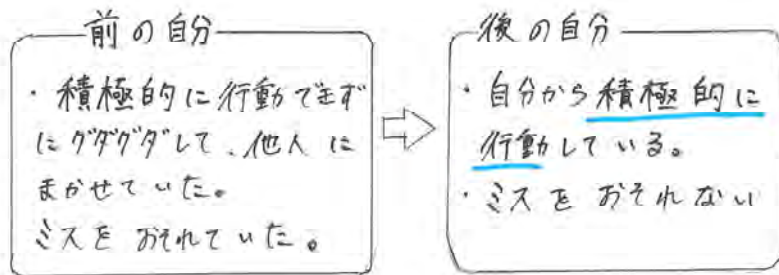 前の自分
・積極的に行動できず
にグダグダして、他人に
まかせていた。
ミスをおそれていた。
後の自分
・自分から積極的に
行動している。
・ミスをおそれない